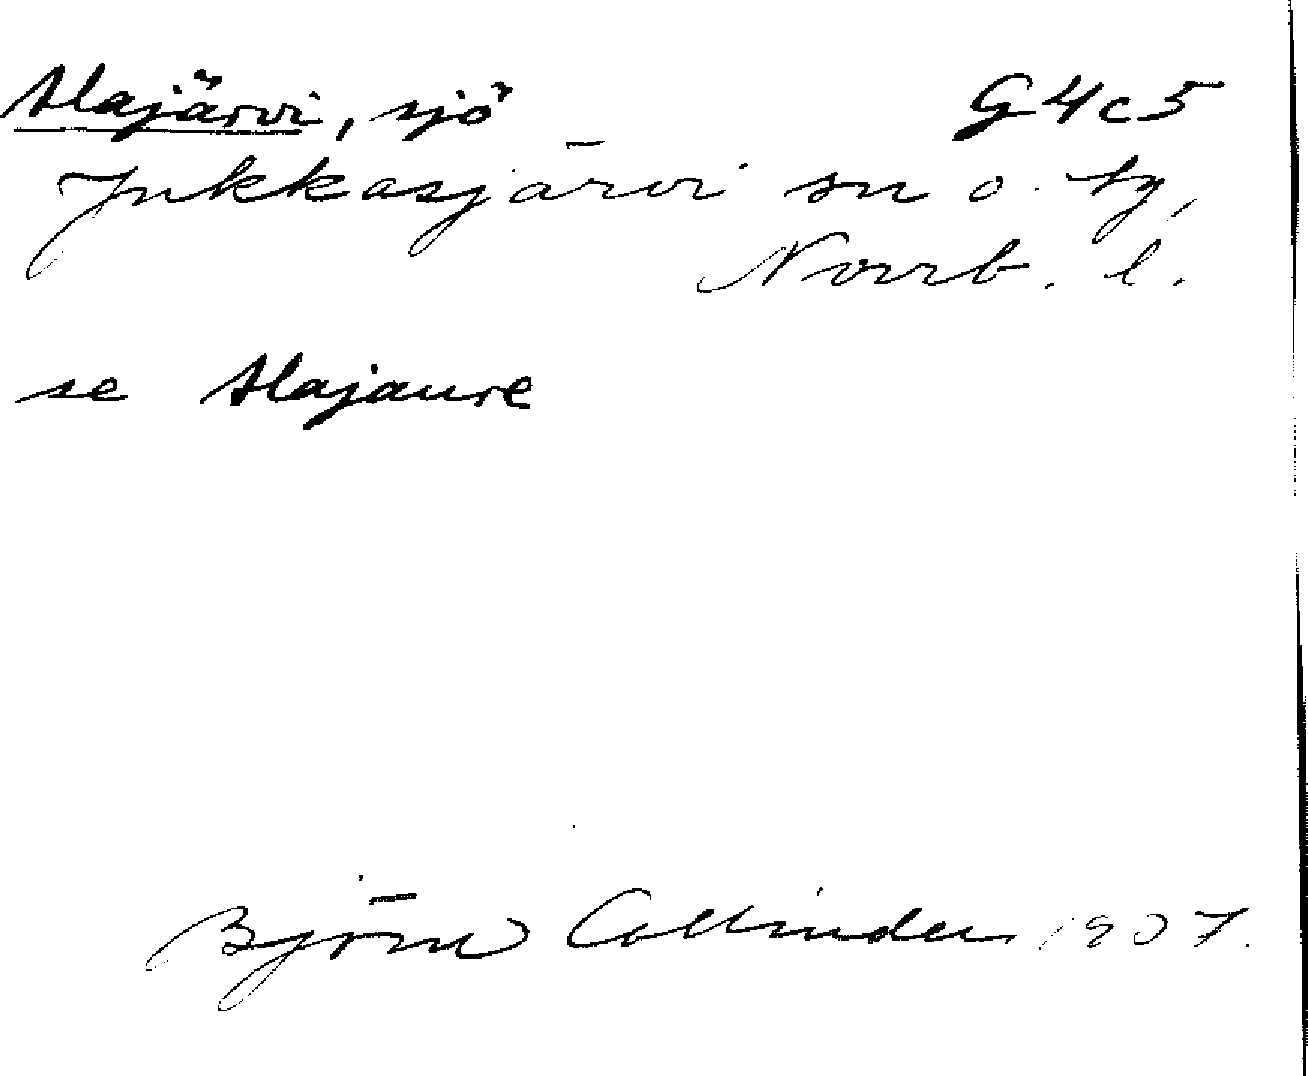 Alajärvi, sjö G4c5
Jukkasjärvi sn o. tg,
Norrb. l.
se Alajaure
Björn Collinder 1907.